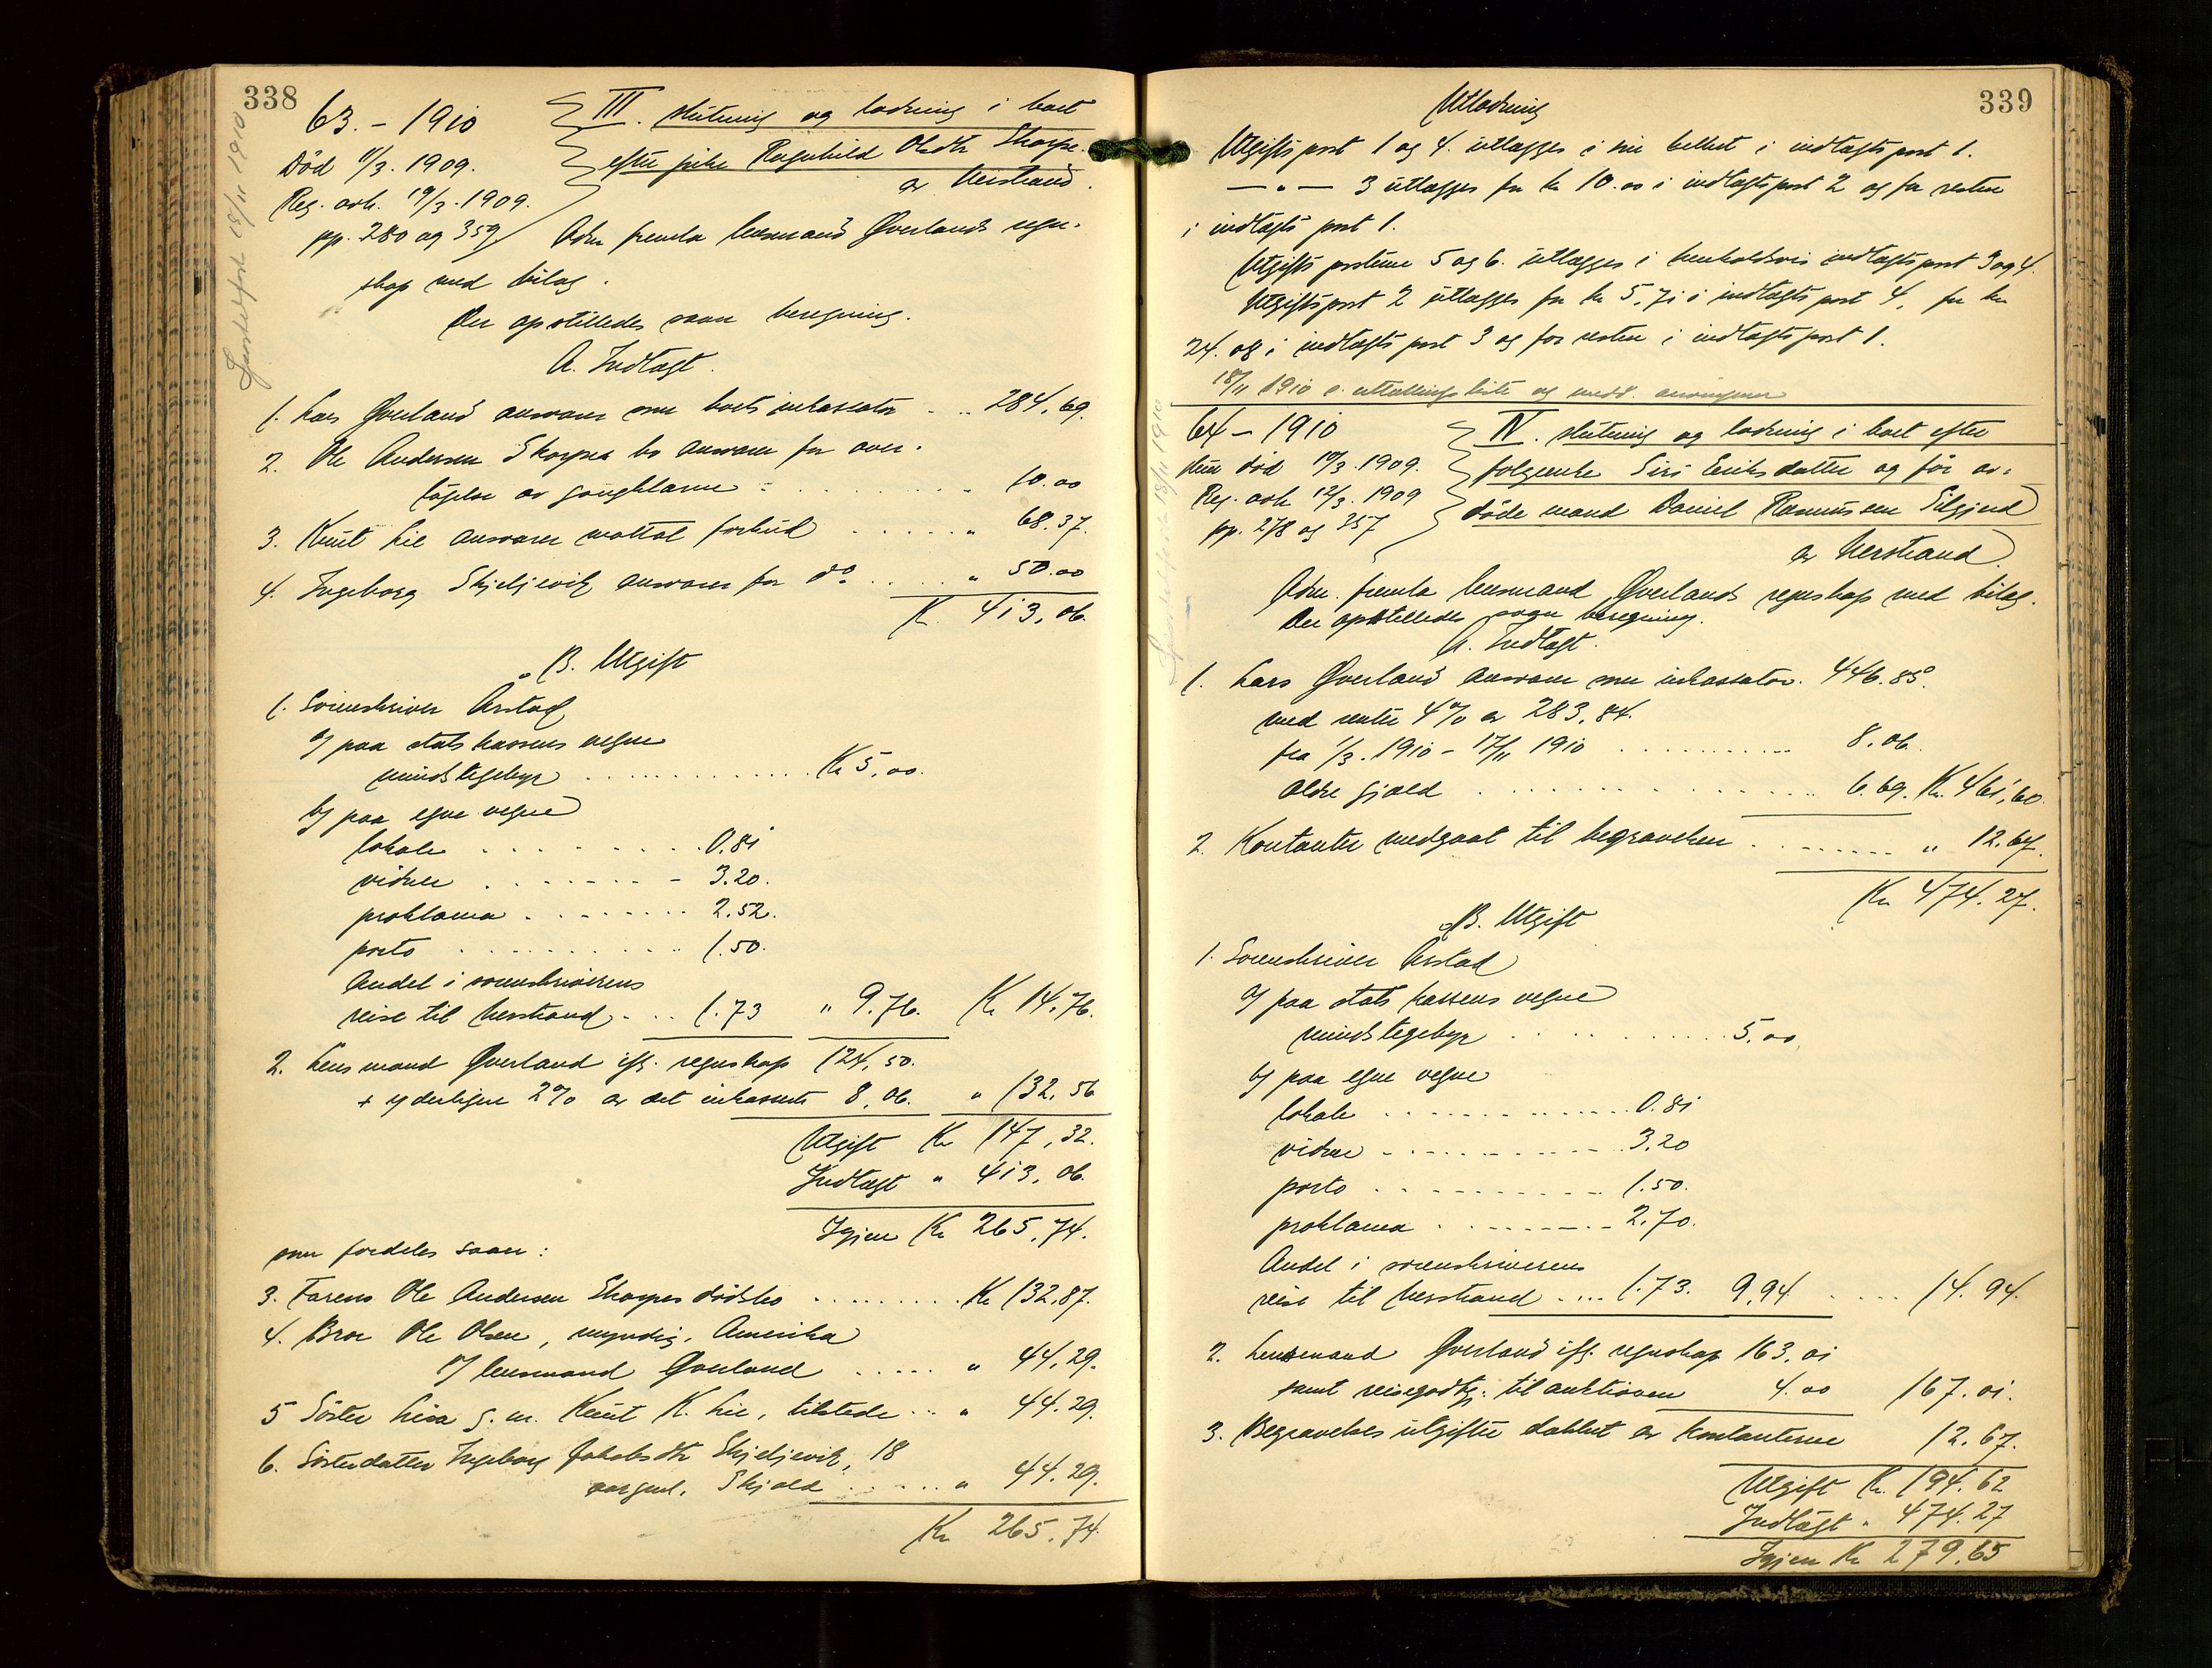 338
63. - 1910
III. slutning og lodning i boet
Död 11/3. 1909.
efter pike Ragnhild Olsdtr Skorpe
av Nerstrand.
Reg. avh. 19/3. 1909.
pp. 280 og 359
Adm fremla lensmand Qverlands regn-
skap med bilag.
Der opstilledes saan beregning.
A. Indtægt.
1. Lars Qverland ansvarer som boets inkassator . .. 284,69.
2. Ole Andersen Skorpes bo ansvarer for over-
tagelse av gangklærne . . . . . . . „ 10.00
3. Knut Lie ansvarer mottat forskud . . . . . „ 68.37.
4. Ingeborg Skjeljevik ansvarer for do. . . . . „ 50.00
Kr. 413,06.
B. Utgift
1. Sorenskriver Årstad
a) paa statskassens vegne
mindstegebyr . . . . . . . . . Kr 5,00.
b) paa egne vegne
lokale . . . . . . . . 0.81
vidner . . . . . . - 3.20.
proklama . . . . . . . 2.52.
porto . . . . . . . . 1.50.
Andel i sorenskriverens
reise til Nerstrand. . . . 1.73 „ 9.76. Kr 14,76.
2. Lensmand Qverland ifl. regnskap 124,50.
+ yderligere 2% av det inkasserte 8,06. „ 132,56
Utgift Kr 147,32.
Indtægt „ 413,06.
Igjen Kr 265,74.
som fordeles saan:
3. Farens Ole Andersen Skorpes dödsbo . . . . . . . Kr 132,87.
4. Bror Ole Olsen, myndig, Amerika
v/ lensmand Qverland . . . . „ 44,29.
5 Söster Lisa g. m. Knut K. Lie, tilstede . . . „ 44.29.
6. Sösterdatter Ingeborg Jakobsdtr Skjeljevik, 18
aar gml. Skjold . . . . . „ 44.29.
Kr 265.74.
339
Utlodning
Utgifts post 1 og 4. utlægges i sin helhet i indtægts post 1.
— „ — 3 utlægges for kr 10.00 i indtægts post 2 og for resten
i indtægts post 1.
Utgifts posterne 5 og 6. utlægges i henholdsvis indtægts post 3 og 4.
Utgifts post 2 utlægges for kr 5,71 i indtægts post 4, for kr
24.08 i indtægts post 3 og for resten i indtægts post 1.
18/11 1910 utlodnings liste og medd. anvisninger
64 - 1910
IV. slutning og lodning i boet efter
död 10/3. 1909.
folgeenke Siri Eriksdatter og för av-
Reg. avh 12/3. 1909
døde mand Daniel Rasmussen Eilgjerd
pp. 278 og 357
av Nerstrand.
Adm. fremla lensmand Qverlands regnskap med bilag.
Der opstilledes saan beregning.
A. Indtægt.
1. Lars Qverland ansvarer som inkassator. 446.85.
med renter 4% av 283,84.
fra 1/3. 1910 - 17/11 1910 . . . . . . . . 8,06.
Ældre gjæld . . . . . . . . . . . . 6.69. Kr. 461,60.
2. Kontanter medgaat til begravelsen . . . . . . „ 12.67.
Kr 474.27.
B. Utgift
1. Sorenskriver Årstad
a) paa statskassens vegne
mindstegebyr . . . . . . . . . 5,00.
b) paa egne vegne
lokale . . . . . . . . . . . 0.81
vidner . . . . . . . . . . 3.20
porto . . . . . . . . . . 1.50.
proklama . . . . . . . . 2.70.
Andel i sorenskriverens
reise til Nerstrand . . . . 1.73. 9,94 . . . . 14.94.
2. Lensmand Qverland ifl. regnskap 163,01
samt reisegodtgj. til auktionen 4.00 167.01.
3. Begravelses utgifter dækket av kontanterne 12.67.
Utgift Kr. 194.62
Indtægt „ 474.27
Igjen Kr 279,65